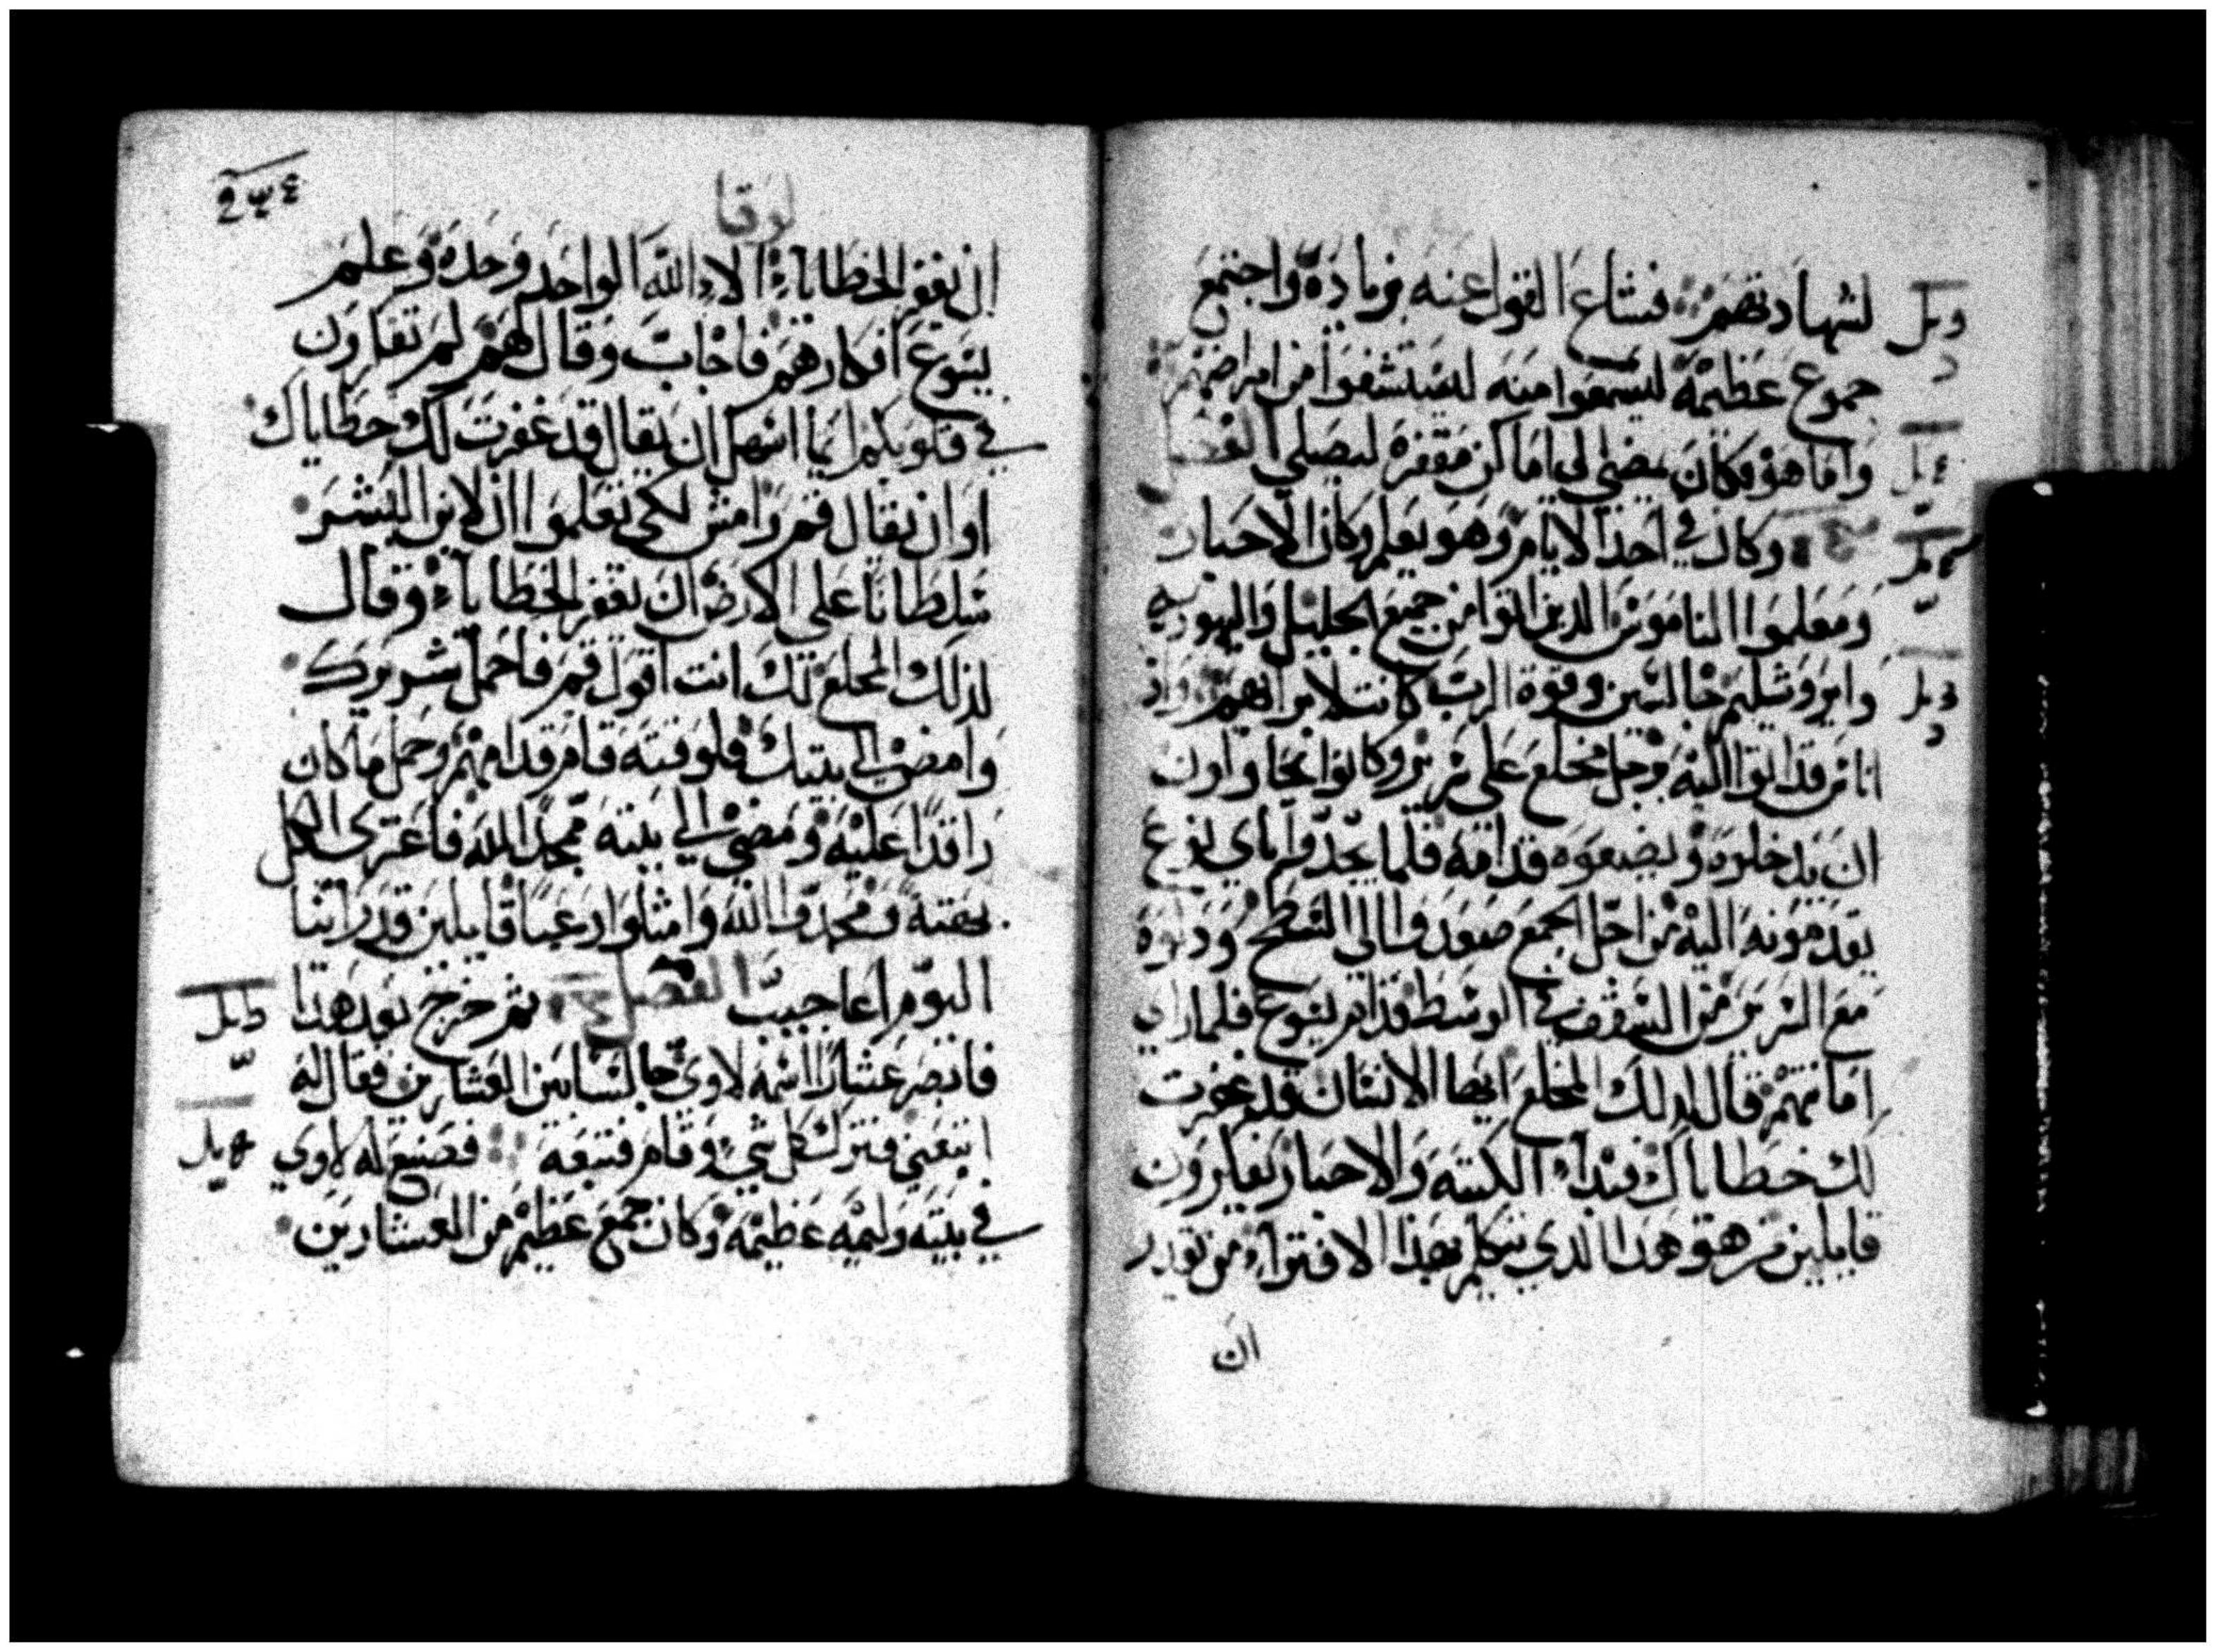 لشهادتهم فشاع القول عنه بزيادة واجتمع
جموع عظيمة ليسمعوا منه ليستشفوا من امراضهم
واما هو فكان يمضي الى اماكن مقفرة ليصلي الفصل
وكان في احد الايام وهو يعلم وكان الاحبار
ومعلموا الناموس الدين اتوا من جميع الجليل واليهودية
وايروشليم جالسين وقوة الرب كانت لابرايهم واذ
اناس قد اتوا اليه برجل مخلع على سرير وكانوا يحاولون
ان يدخلوه ويضعوه قدامه فلما لم يجدوا باي نوع
يقدمونه اليه من اجل الجمع صعدوا الى السطح ودلوه
مع السرير من السقف في الوسط قدام يسوع فلما راى
امانتهم قال لدلك المخلع ايها الانسان قد غفرت
لك خطاياك فبداء الكتبة والاحبار يفكرون
قايلين من هو هدا الدي يتكلم بهدا الافتراء من يقدر
ان
لوقا
ان يغفر الخطاياء الا الله الواحد وحده وعلم
يسوع افكارهم فاجاب وقال لهم لم تفكرون
في قلوبكم ايما اسهل ان يقال قد غفرت لك خطاياك
او ان يقال قم وامش لكي تعلموا ان لابن البشر
سلطانا على الارض ان يغفر الخطاياء وقال
لذلك المخلع لك انت اقول قم فاحمل سريرك
وامض الى بيتك فلوقته قام قدامهم وحمل ما كان
راقدا عليه ومضى الى بيته ممجدا لله فاعترى الكل
بهتة ومجدوا الله وامتلوا رعبا قايلين قد راينا
اليوم اعاجيب الفصل ثم خرج بعد هدا
فابصر عشارا اسمه لاوي جالسا بين العشارين فقال له
اتبعني فترك كل شي وقام فتبعه فصنع له لاوي
في بيته وليمة عظيمة وكان جمع عظيم من العشارين